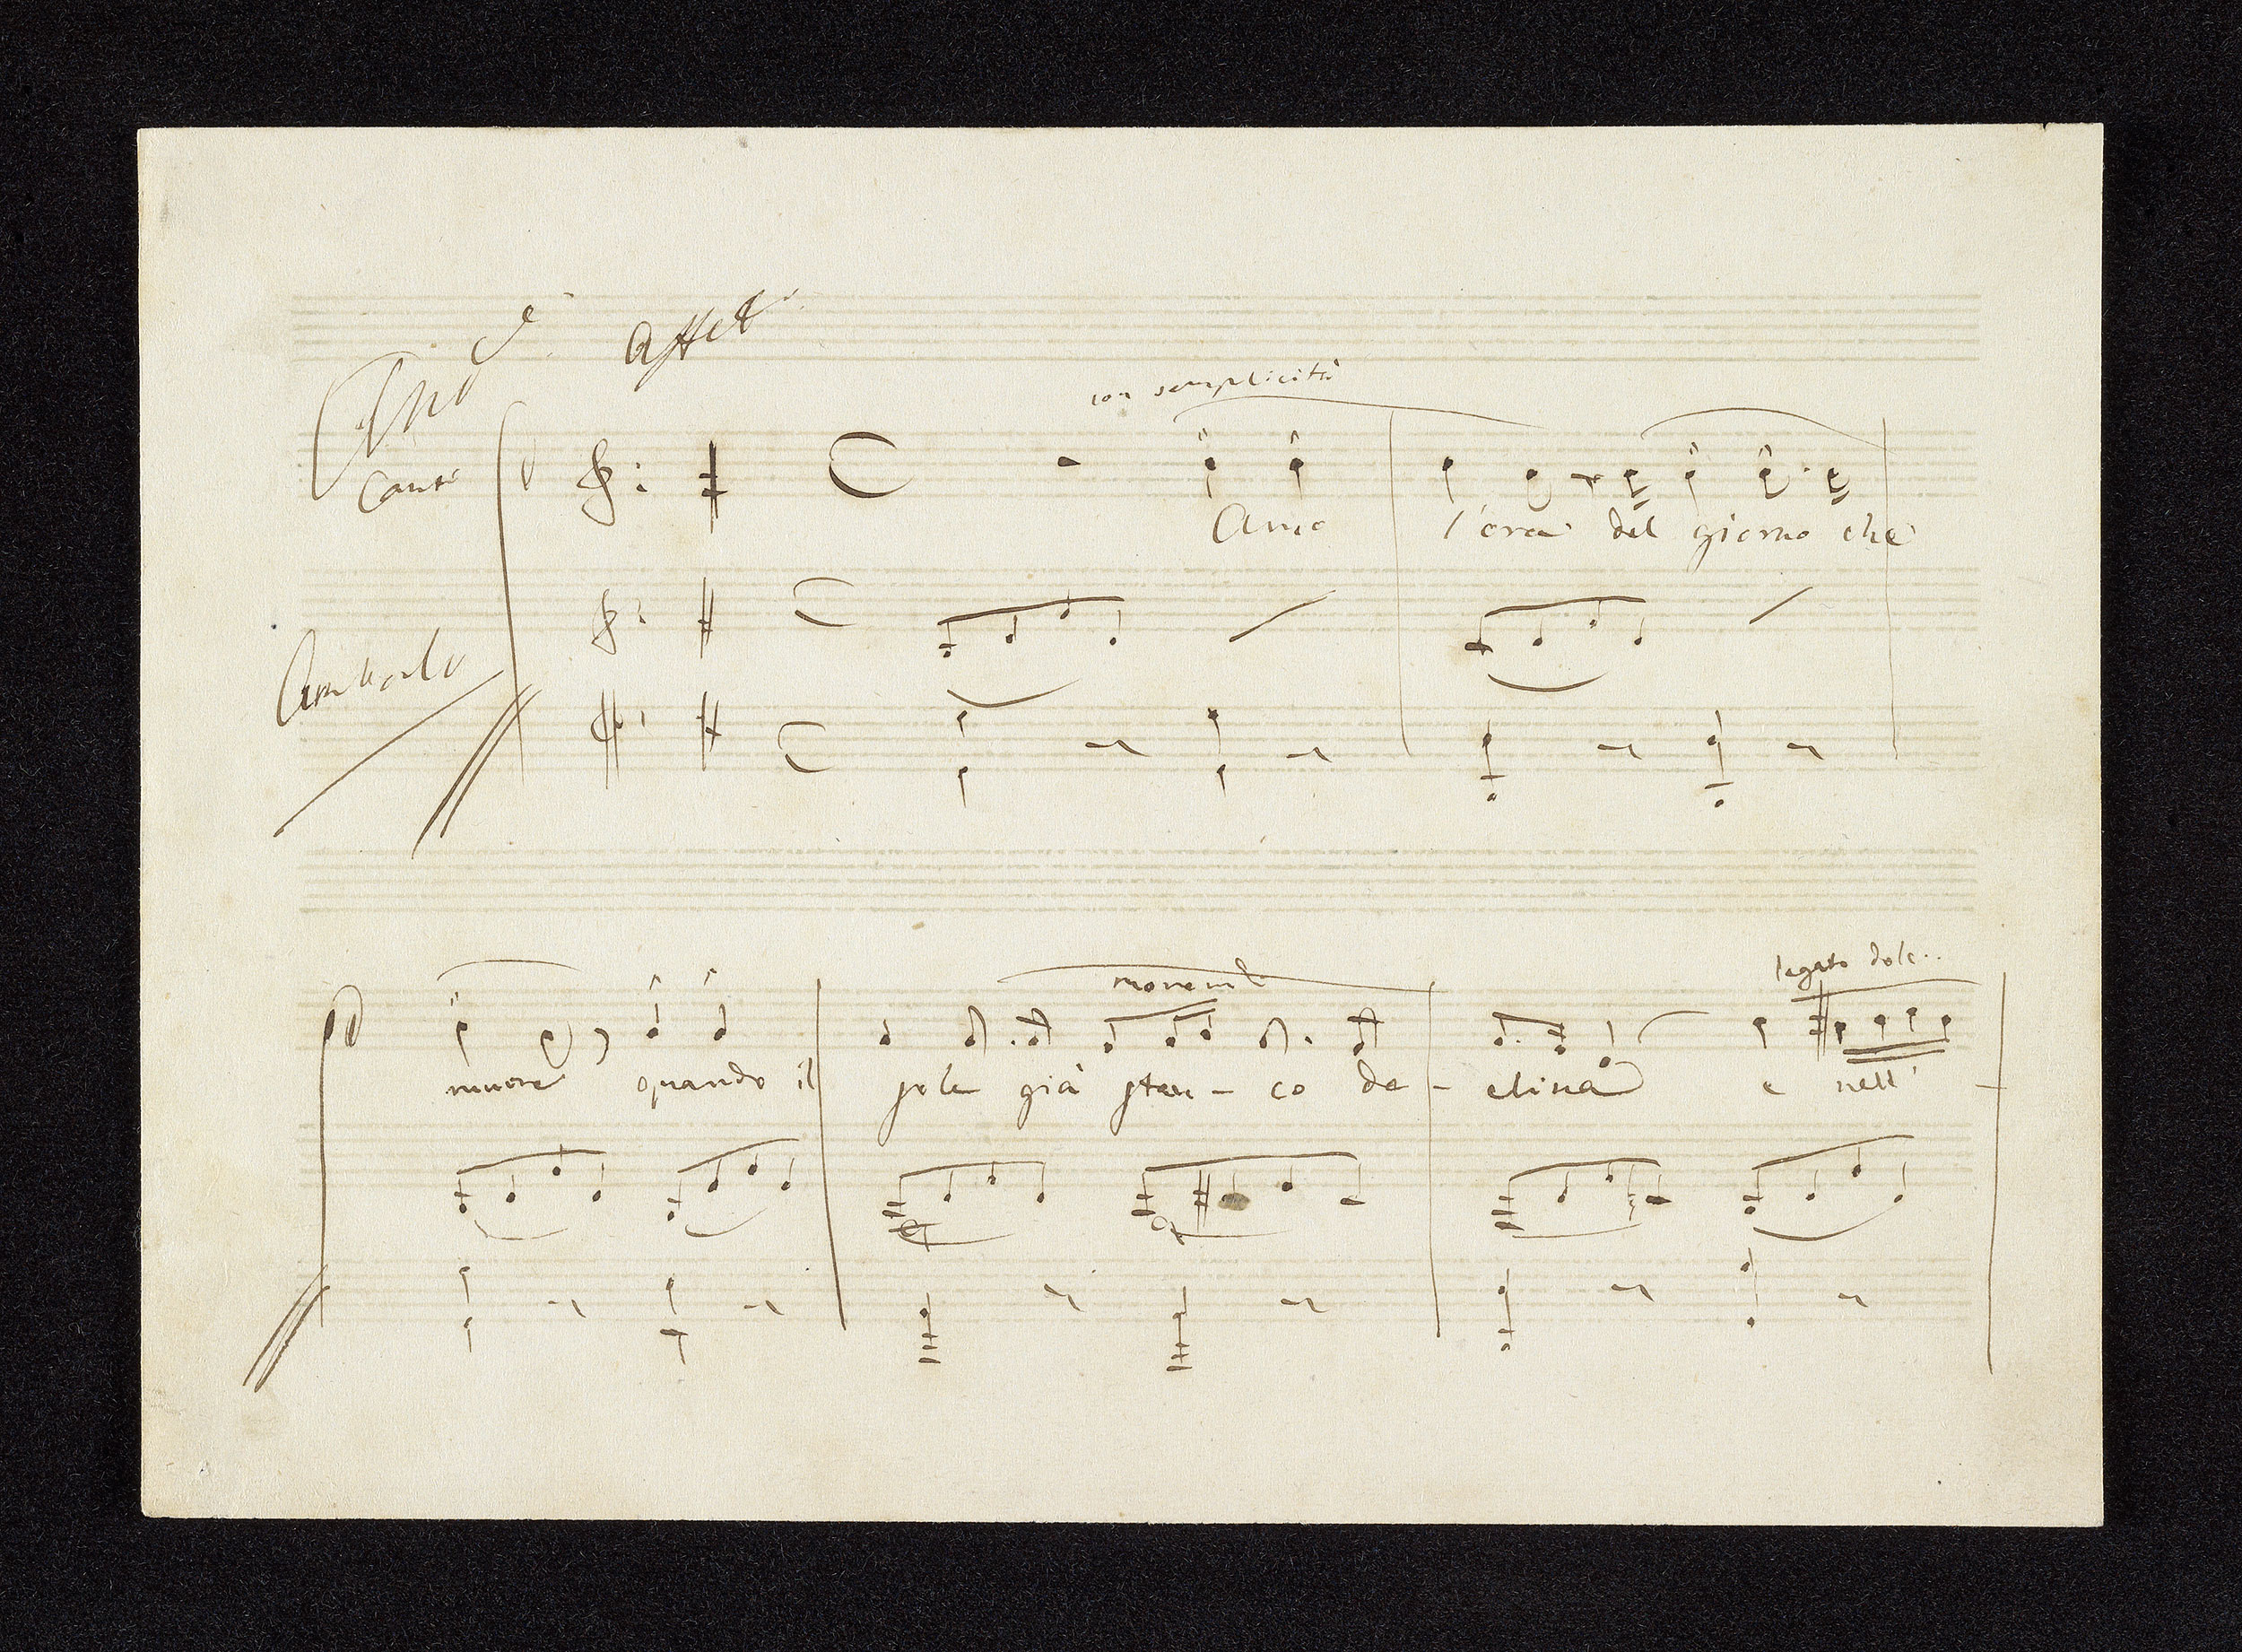 And.e affett.
con semplicità
Canto
Amo l'ora del giorno che
Cembalo
legato dolc..
movend.
muore quando il sole già stan - co de - clina e nell' -